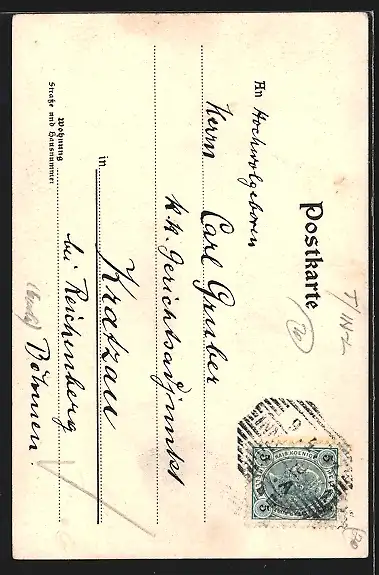 Postkarte
An Hochwolgeboren
Herrn Carl Gruber
k.k. Gerichtsadjunkt
in Kratzau
bei Reichenberg
Böhmen.
Wohnung
Straße und Hausnummer
5 5
5 5